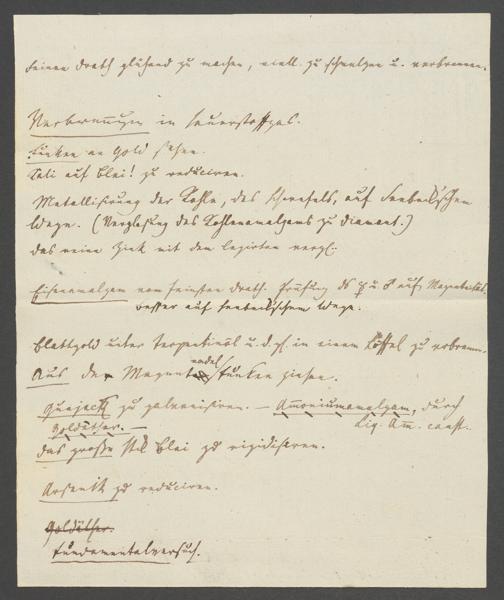 feinen Drath glühend zu machen, viell. zu schmelzen u. verbrennen.
Verbrennungen in Sauerstoffgas.
Funken an Gold sehen.
Kali auf Blei! zu reduciren.
Metallisirung der Kohle, des Schwefels, auf Seebeck'schen
Wege. (Verglasung des Kohlenamalgams zu Diamant.)
das reine Zink mit dem legirten vergl.
Eisenamalgam vom feinsten Drath. Prüfung ds u. auf Magnetität.
besser auf seebeckischem Wege.
Blattgold unter Terpentinöl u. d. gl. in einem Löffel zu verbrenn.
Aus der Magnetnadel Funken ziehen.
Guajack zu galvanisiren. — Ammoniumamalgam, durch
Goldäther. — Liq. Am. caust.
das große Stück Blei zu rigidisiren.
Arsenik zu reduciren.
Goldäther.
Fundamentalversuch.